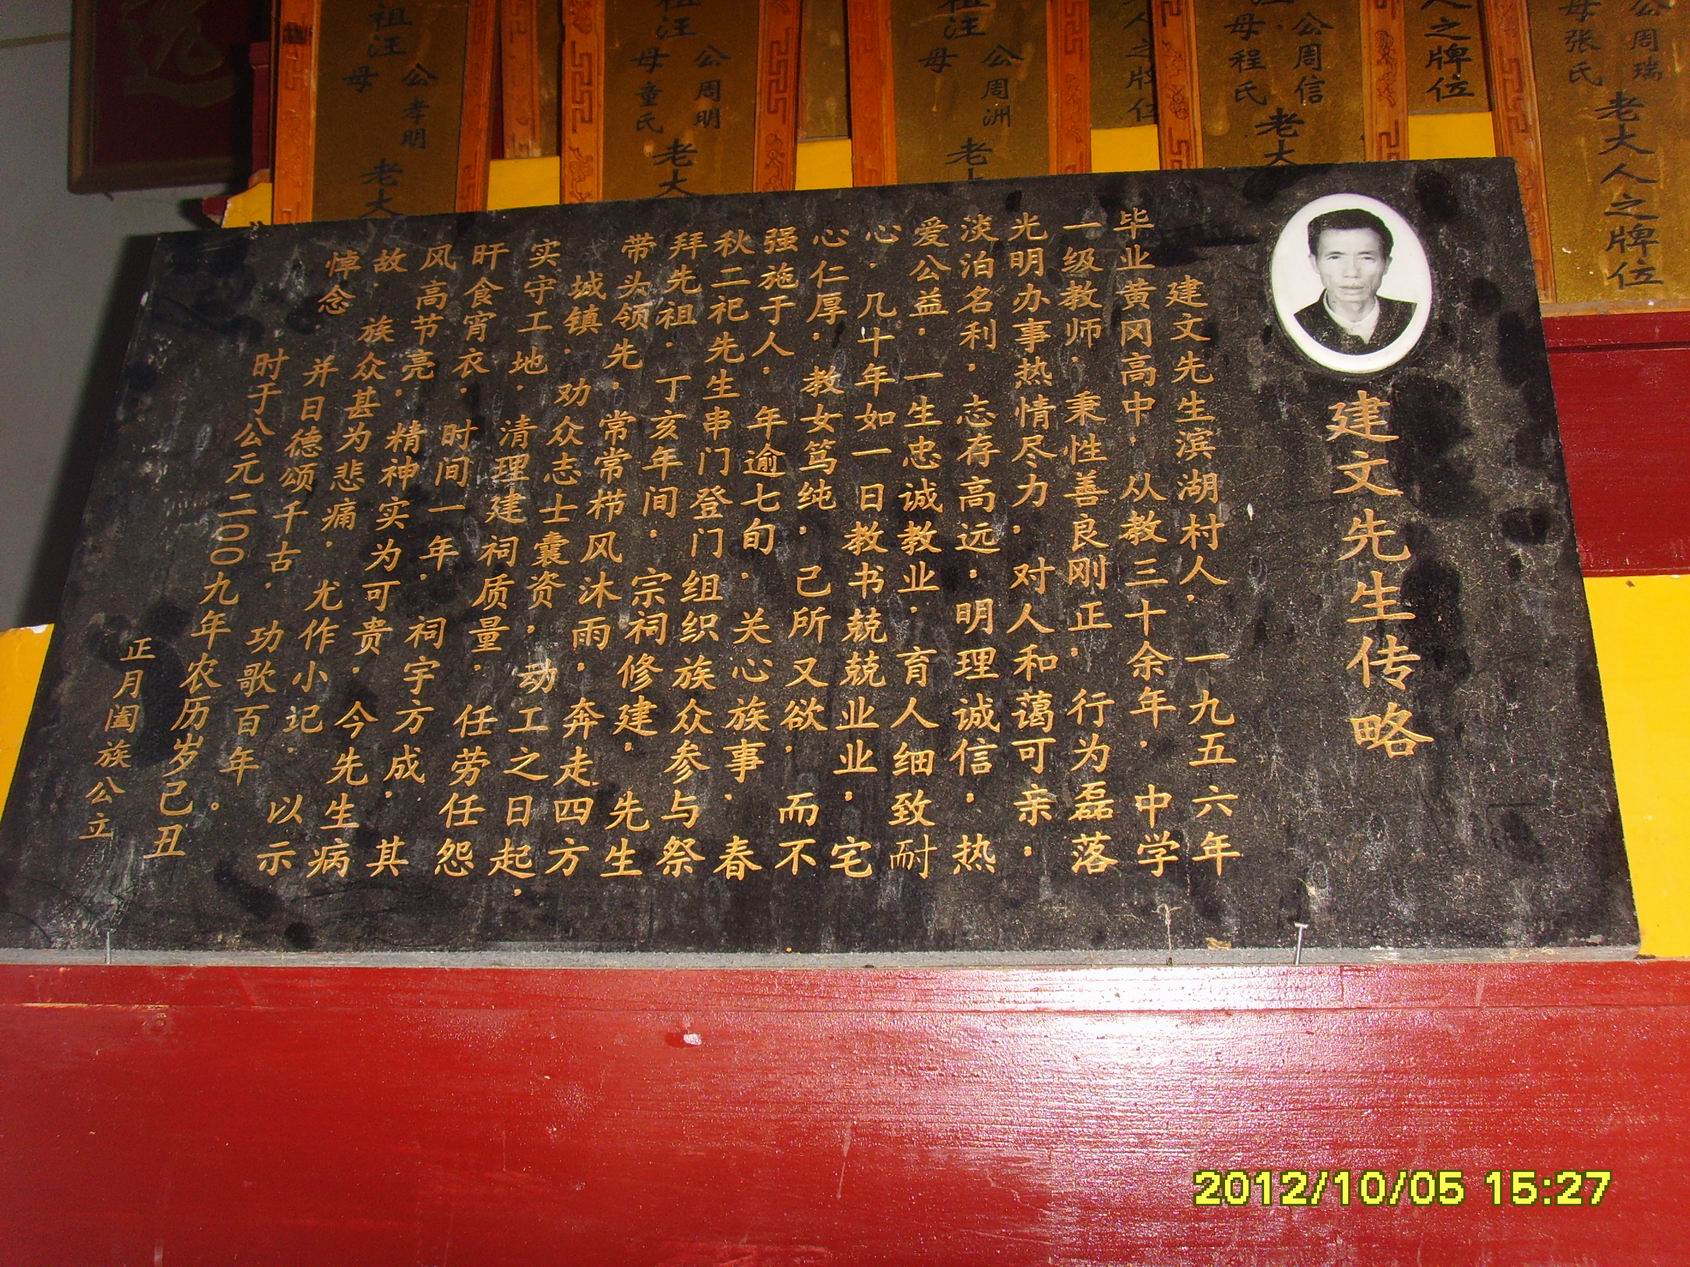 建文先生传略
建文先生滨湖村人，一九五六年
毕业黄冈高中，从教三十余年，中学
一级教师，秉性善良刚正，行为磊落
光明办事热情尽力，对人和蔼可亲，
淡泊名利，志存高远，明理诚信，热
爱公益，一生忠诚教业，育人细致耐
心，几十年如一日教书兢兢业业，宅
心仁厚，教女笃纯，己所又欲，而不
强施于人，年逾七旬，关心族事，春
秋二祀先生串门登门组织族众参与祭
拜先祖，丁亥年间，宗祠修建，先生
带头领先，常常栉风沐雨，奔走四方
城镇，劝众志士囊资，动工之日起，
实守工地，清理建祠质量，任劳任怨
旰食宵衣，时间一年，祠宇方成，其
风高节亮，精神实为可贵，今先生病
故，族众甚为悲痛，尤作小记，以示
悼念
并日德颂千古，功歌百年。
时于公元二00九年农历岁己丑
正月阖族公立
公周瑞
母张氏
老大人之牌位
人之牌位
公周信
母程氏
老大
人之牌位
祖汪
公周洲
母
老大
祖汪
公周明
母童氏
老大
祖汪
公孝明
母
老大
2012/10/05 15:27